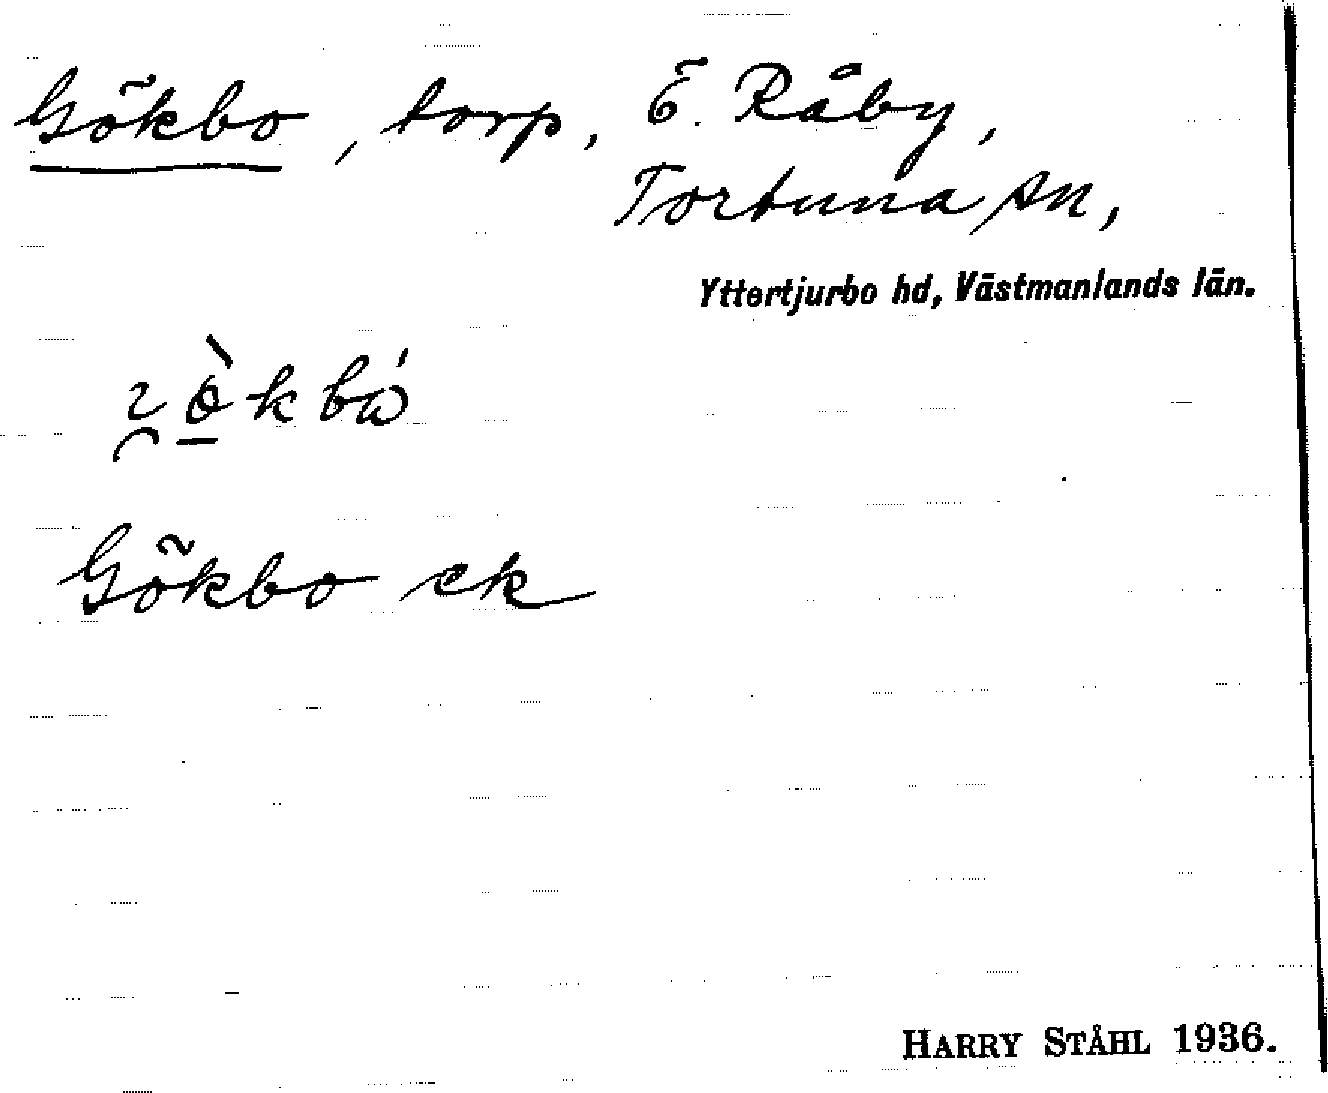 Gökbo, torp, Ö. Råby,
Tortuna sn,
Yttertjurbo hd, Västmanlands län.
Gökbo ek
HARRY STÅHL 1936.